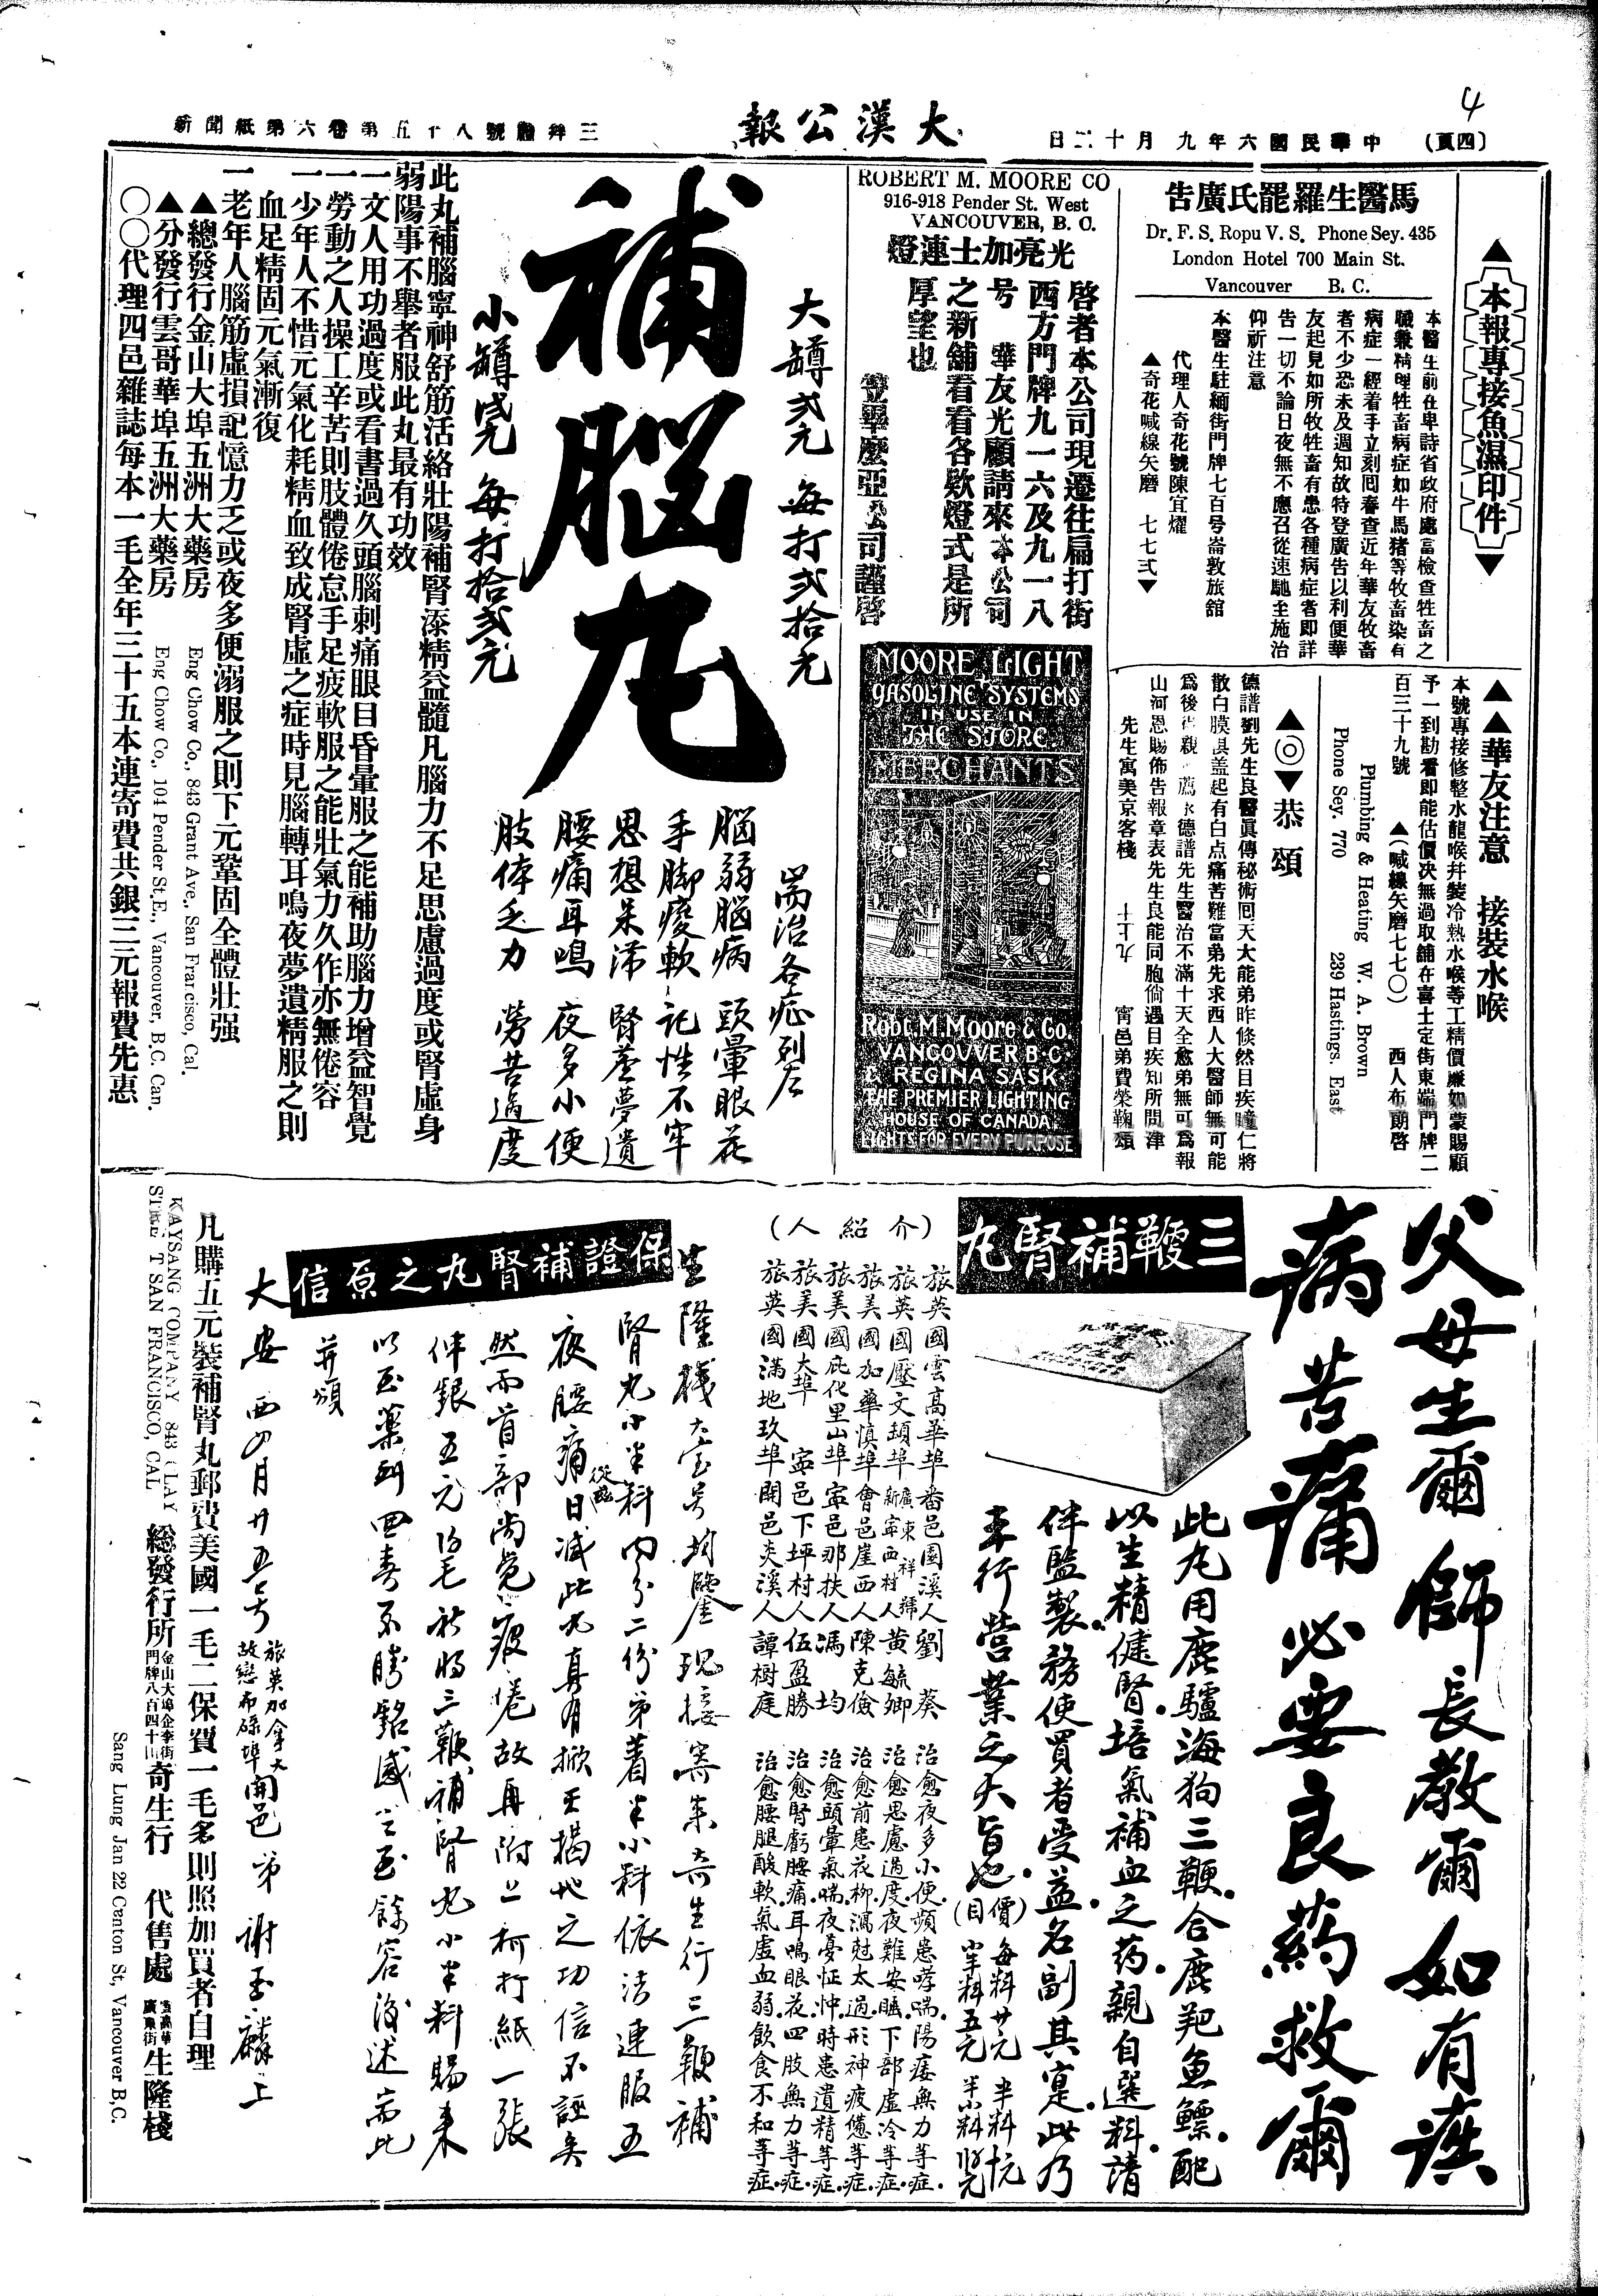 4
(四頁)
中華民國六年九月十二日
大漢公報
新聞紙第六卷第五十八號
▲本報專接魚濕印件▼
馬醫生羅罷氏廣告
Dr. F. S. Ropu V. S. Phone Sey. 435
London Hotel 700 Main St.
Vancouver B. C.
本醫生前在卑詩省政府處當檢查牲畜之
職兼精理牲畜病症如牛馬猪等牧畜染有
病症一經着手立刻囘春查近年華友牧畜
者不少恐未及週知故特登廣告以利便華
友起見如所牧牲畜有患各種病症者即詳
告一切不論日夜無不應召從速馳至施治
仰祈注意
本醫生駐緬街門牌七百号崙敦旅舘
代理人奇花號陳宜燿
▲奇花喊線矢磨 七七式▼
▲▲華友注意 接裝水喉
本號專接修整水龍喉幷裝冷熱水喉等工精價廉如蒙賜顧
予一到勘看即能估價決無過取舖在喜士定街東端門牌二
百三十九號 ▲(喊線矢磨七七〇) 西人布朗啓
Plumbing & Heating W. A. Brown
Phone Sey. 770 239 Hastings. East
▲◎▼恭頌
德譜劉先生良醫眞傳秘術囘天大能弟昨倏然目疾瞳仁將
散白膜俱盖起有白点痛苦難當弟先求西人大醫師無可能
爲後得親 薦 德譜先生醫治不滿十天全愈弟無可爲報
山河恩賜佈告報章表先生良能同胞倘遇目疾知所問津
先生寓美京客棧 十上九 甯邑弟費榮鞠頌
ROBERT M. MOORE CO
916-918 Pender St. West
VANCOUVER, B. C.
光亮加士連燈
啓者本公司現遷往扁打街
西方門牌九一六及九一八
号 華友光顧請來本公司
之新舖看看各欵燈式是所
厚望也
笠罩麼亞公司謹啓
MOORE LIGHT
GASOLINE SYSTEMS
IN USE IN
THE STORE
MERCHANTS
Robt. M. Moore & Co.
VANCOUVER B.C.
& REGINA SASK.
THE PREMIER LIGHTING
HOUSE OF CANADA
LIGHTS FOR EVERY PURPOSE
大罇弍元 每打弍拾元
補腦丸
小罇 每打拾弍元
耑治各症列左
腦弱腦病 頭暈眼花
手脚痠軟 記性不牢
思想呆滯 腎虛夢遺
腰痛耳鳴 夜多小便
肢体乏力 勞苦過度
此丸補腦寧神舒筋活絡壯陽補腎添精益髓凡腦力不足思慮過度或腎虛身
弱陽事不舉者服此丸最有功效
一文人用功過度或看書過久頭腦刺痛眼目昏暈服之能補助腦力增益智覺
一勞動之人操工辛苦則肢體倦怠手足疲軟服之能壯氣力久作亦無倦容
一少年人不惜元氣化耗精血致成腎虛之症時見腦轉耳鳴夜夢遺精服之則
血足精固元氣漸復
一老年人腦筋虛損記憶力乏或夜多便溺服之則下元鞏固全體壯强
▲總發行金山大埠五洲大藥房 Eng Chow Co., 843 Grant Ave., San Francisco, Cal.
▲分發行雲哥華埠五洲大藥房 Eng Chow Co., 104 Pender St. E., Vancouver, B.C. Can.
〇〇代理四邑雜誌每本一毛全年三十五本連寄費共銀三元報費先惠
父母生爾 師長教爾 如有疾
病苦痛 必要良药救爾
三鞭補腎丸
此丸用鹿驢海狗三鞭合鹿羓魚鰾配
以生精健腎培氣補血之药親自選料請
伴監製務使買者受益名副其寔此乃
本行營業之大旨也
(價目) 每料廿元 半料拾元
小半料五元
(介紹人)
旅英國雲高華埠番邑園溪人劉葵 治愈夜多小便頻患哮喘陽痿無力等症
旅英國壓文頓埠新寧西村人黄毓卿 治愈思慮過度夜難安眠下部虛冷等症
旅美國加華慎埠會邑崖西人陳克儉 治愈前患花柳濁尅太過形神疲憊等症
旅美國庇化里山埠寧邑那扶人馮均 治愈頭暈氣喘夜憂怔忡時患遺精等症
旅美國大埠 寧邑下坪村人伍盈勝 治愈腎虧腰痛耳鳴眼花四肢無力等症
旅英國滿地玖埠開邑炎溪人譚樹庭 治愈腰腿酸軟氣虛血弱飲食不和等症
保證補腎丸之原信
生隆棧大宝号均鑒 現接寄來奇生行三鞭補
腎丸小半料內分二份弟着半小料依法連服五
夜腰痛從此日減此丸真有掀天揭地之功信不誣矣
然而首部尚覺疲倦故再附上柯打紙一張
伸銀五元 祈將三鞭補腎丸小半料賜來
以至藥到回春不勝銘感之至餘容後述耑此
并頌
大安 西四月廿五号 旅英加拿大 開邑弟謝玉麟上
凡購五元裝補腎丸郵費美國一毛二保費一毛多則照加買者自理
KAYSANG COMPANY 843 CLAY
STREET SAN FRANCISCO, CAL
總發行所 金山大埠企李街門牌八百四十三 奇生行 代售處 雲高華廣東街 生隆棧
Sang Lung Jan 22 Canton St, Vancouver B,C.